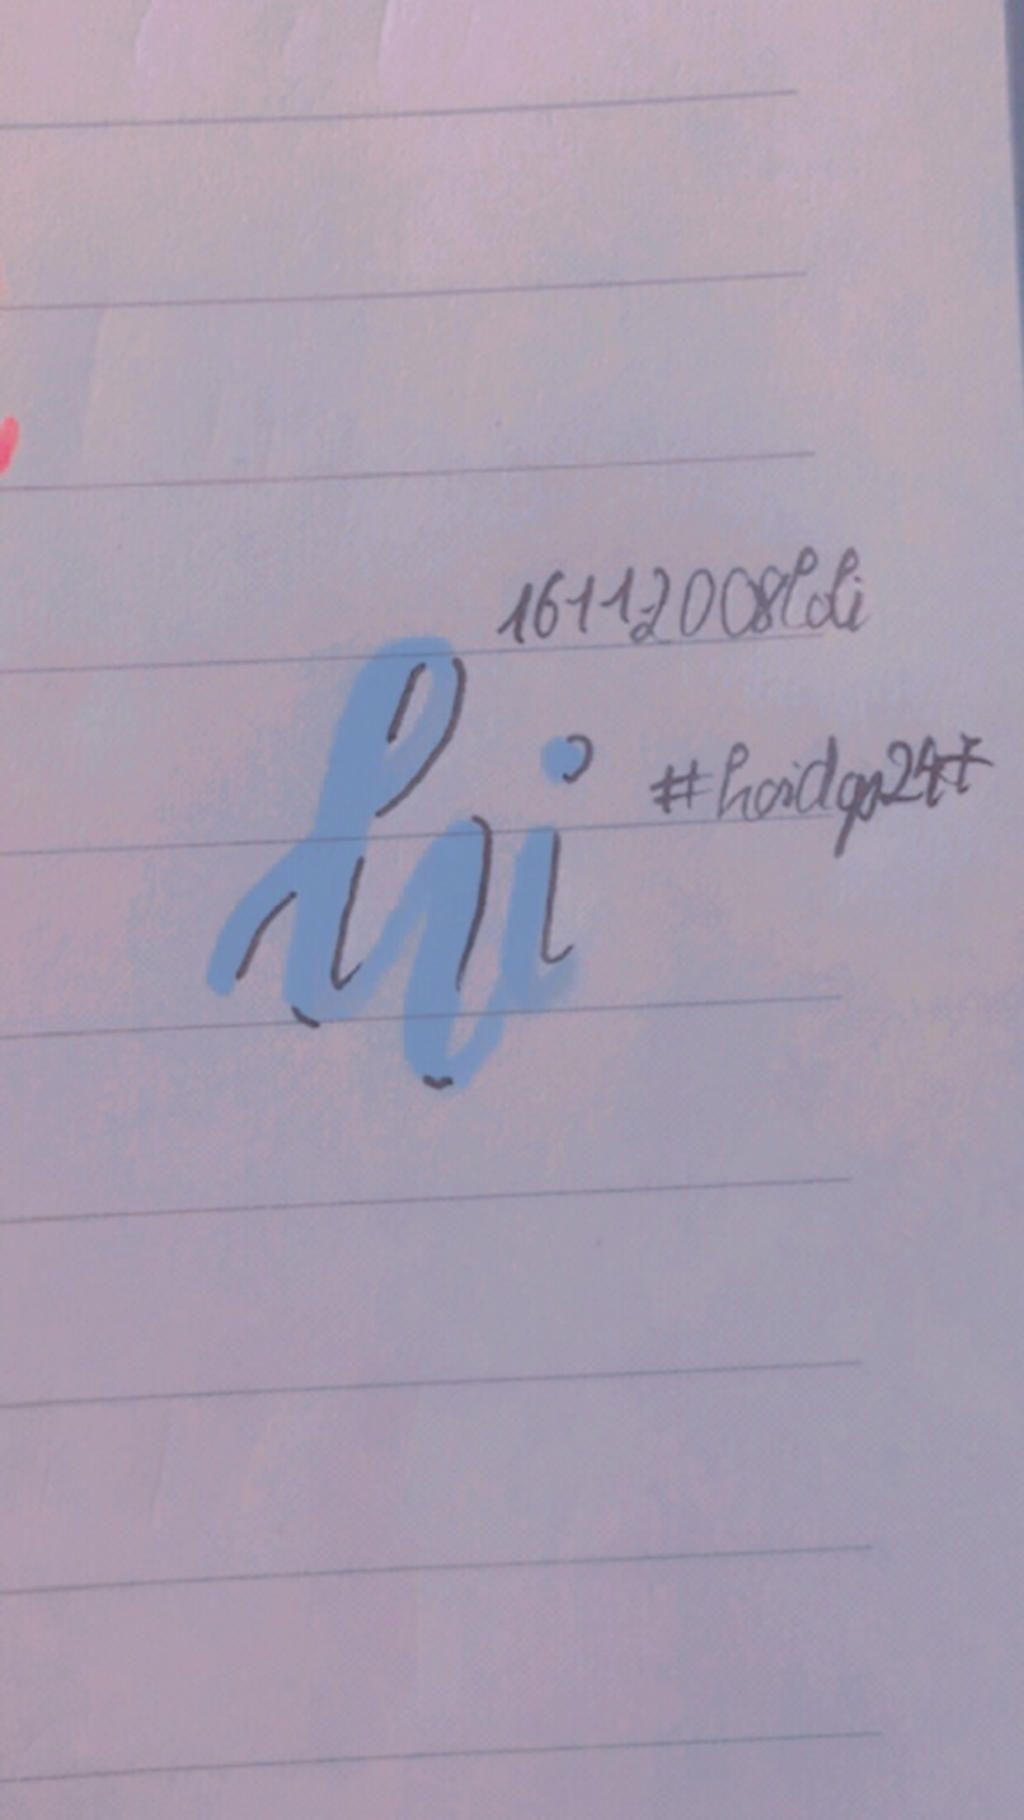 16112008ldi
hi
#hoidap247